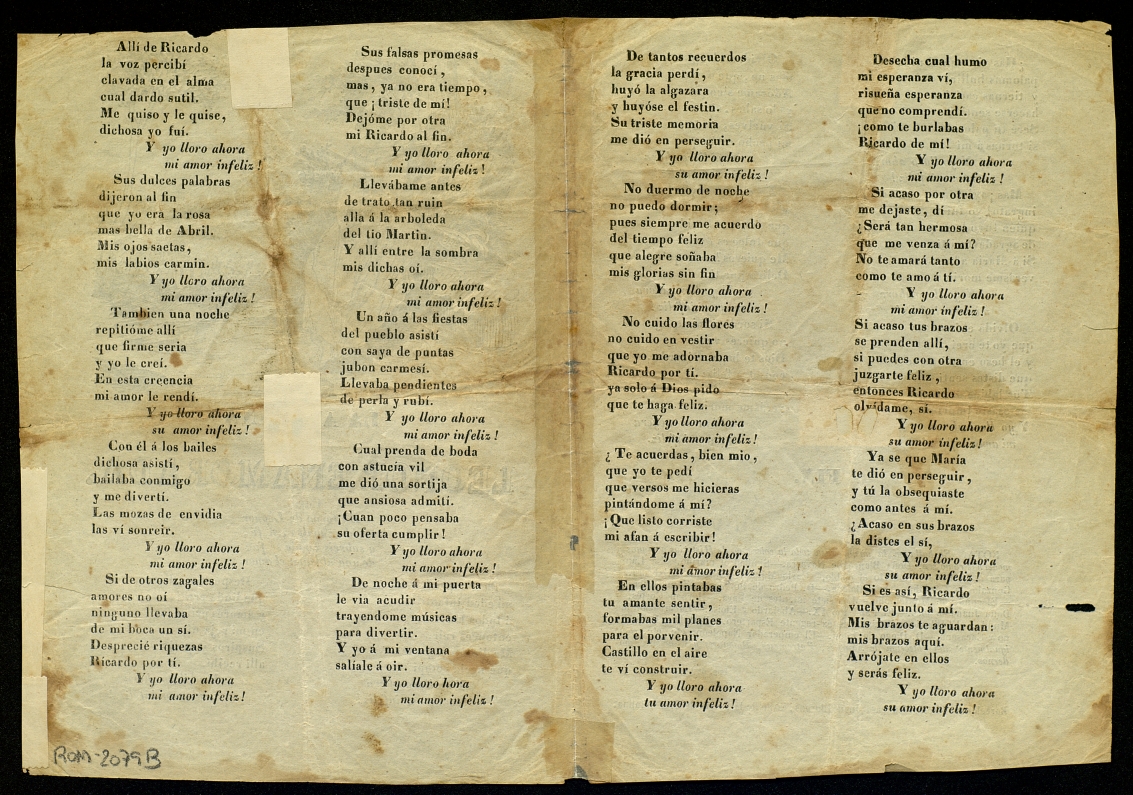 Allí de Ricardo
la voz percibí
clavada en el alma
cual dardo sutil.
Me quiso y le quise,
dichosa yo fuí.
Y yo lloro ahora
mi amor infeliz!
Sus dulces palabras
dijeron al fin
que yo era la rosa
mas bella de Abril.
Mis ojos saetas,
mis labios carmin.
Y yo lloro ahora
mi amor infeliz!
Tambien una noche
repitióme allí
que firme seria
y yo le creí.
En esta creencia
mi amor le rendí.
Y yo lloro ahora
su amor infeliz!
Con él á los bailes
dichosa asistí,
bailaba conmigo
y me divertí.
Las mozas de envidia
las ví sonreir.
Y yo lloro ahora
mi amor infeliz!
Si de otros zagales
amores no oí
ninguno llevaba
de mi boca un sí.
Desprecié riquezas
Ricardo por tí.
Y yo lloro ahora
mi amor infeliz!
Sus falsas promesas
despues conocí,
mas, ya no era tiempo,
que ¡triste de mí!
Dejóme por otra
mi Ricardo al fin.
Y yo lloro ahora
mi amor infeliz!
Llevábame antes
de trato tan ruin
alla á la arboleda
del tio Martin.
Y allí entre la sombra
mis dichas oí.
Y yo lloro ahora
mi amor infeliz!
Un año á las fiestas
del pueblo asistí
con saya de puntas
jubon carmesí.
Llevaba pendientes
de perla y rubí.
Y yo lloro ahora
mi amor infeliz!
Cual prenda de boda
con astucia vil
me dió una sortija
que ansiosa admití.
¡Cuan poco pensaba
su oferta cumplir!
Y yo lloro ahora
mi amor infeliz!
De noche á mi puerta
le via acudir
trayendome músicas
para divertir.
Y yo á mi ventana
salíale á oir.
Y yo lloro hora
mi amor infeliz!
De tantos recuerdos
la gracia perdí,
huyó la algazara
y huyóse el festin.
Su triste memoria
me dió en perseguir.
Y yo lloro ahora
su amor infeliz!
No duermo de noche
no puedo dormir;
pues siempre me acuerdo
del tiempo feliz
que alegre soñaba
mis glorias sin fin
Y yo lloro ahora
mi amor infeliz!
No cuido las flores
no cuido en vestir
que yo me adornaba
Ricardo por tí.
ya solo á Dios pido
que te haga feliz.
Y yo lloro ahora
mi amor infeliz!
¿Te acuerdas, bien mio,
que yo te pedí
que versos me hicieras
pintándome á mí?
¡Que listo corriste
mi afan á escribir!
Y yo lloro ahora
mi amor infeliz!
En ellos pintabas
tu amante sentir,
formabas mil planes
para el porvenir.
Castillo en el aire
te ví construir.
Y yo lloro ahora
tu amor infeliz!
Desecha cual humo
mi esperanza ví,
risueña esperanza
que no comprendí.
¡como te burlabas
Ricardo de mí!
Y yo lloro ahora
mi amor infeliz!
Si acaso por otra
me dejaste, dí
¿Será tan hermosa
que me venza á mí?
No te amará tanto
como te amo á tí.
Y yo lloro ahora
mi amor infeliz!
Si acaso tus brazos
se prenden allí,
si puedes con otra
juzgarte feliz,
entonces Ricardo
olvídame, sí.
Y yo lloro ahora
su amor infeliz!
Ya se que María
te dió en perseguir,
y tú la obsequiaste
como antes á mí.
¿Acaso en sus brazos
la distes el sí,
Y yo lloro ahora
su amor infeliz!
Si es así, Ricardo
vuelve junto á mí.
Mis brazos te aguardan:
mis brazos aquí.
Arrójate en ellos
y serás feliz.
Y yo lloro ahora
su amor infeliz!
ROM-2079B